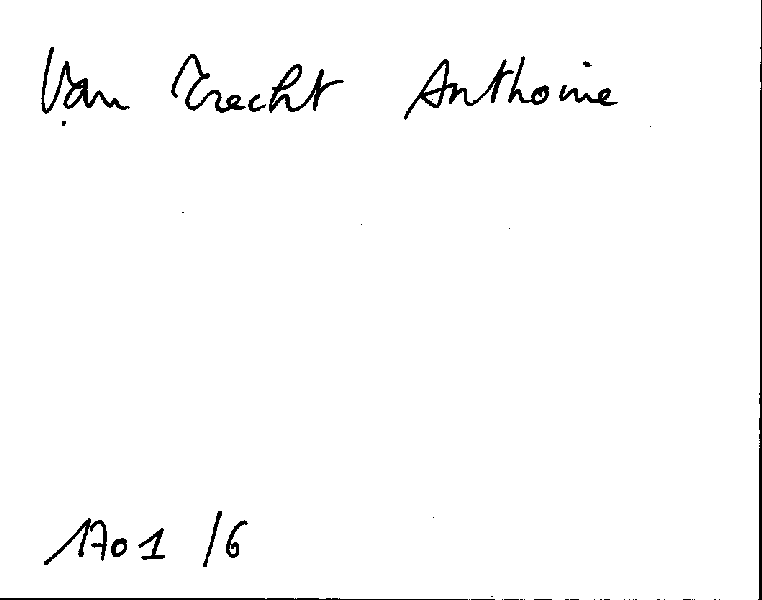 Van Trecht Anthoine
1701 /6